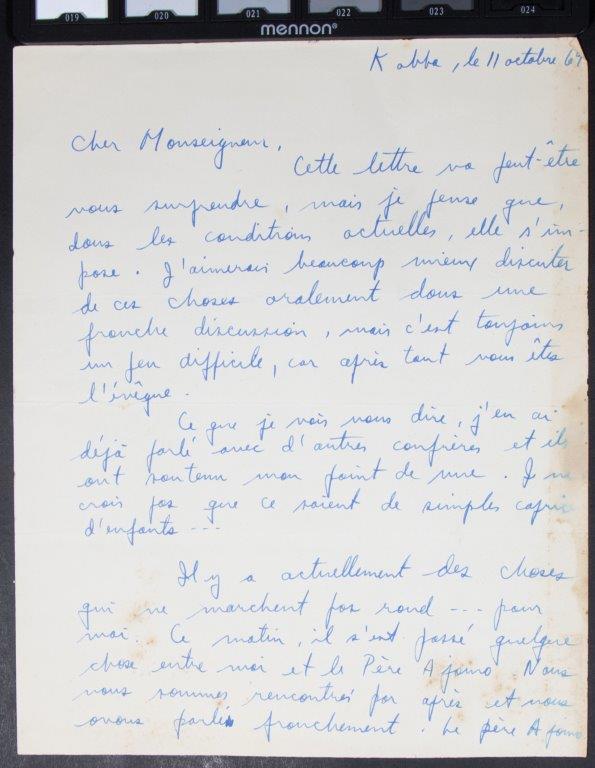 019 020 021 022 023 024
mennon®
Kabba, le 11 octobre 67
Cher Monseigneur,
Cette lettre va peut-être
vous surprendre, mais je pense que,
dans les conditions actuelles, elle s'im-
pose. J'aimerais beaucoup mieux discuter
de ces choses oralement dans une
franche discussion, mais c'est toujours
un peu difficile, car après tout vous êtes
l'évêque.
Ce que je vais vous dire, j'en ai
déjà parlé avec d'autres confrères et ils
ont soutenu mon point de vue. Je ne
crois pas que ce soient de simples caprices
d'enfants ---
Il y a actuellement des choses
qui ne marchent pas rond --- pour
moi. Ce matin, il s'est passé quelque
chose entre moi et le Père Ajomo Nous
nous sommes rencontrés par après et nous
avons parlé franchement. Le père Ajomo